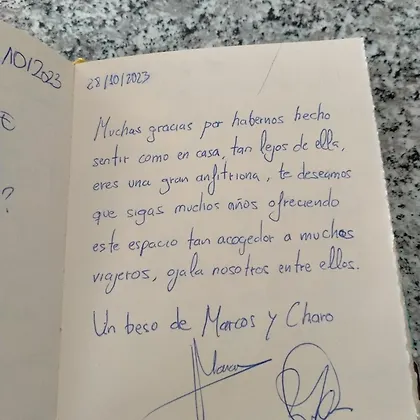 10/2023
€
?
28/10/2023
Muchas gracias por habernos hecho
sentir como en casa, tan lejos de ella,
eres una gran anfitriona, te deseamos
que sigas muchos años ofreciendo
este espacio tan acogedor a muchos
viajeros, ojala nosotros entre ellos.
Un beso de Marcos y Charo
Marcos